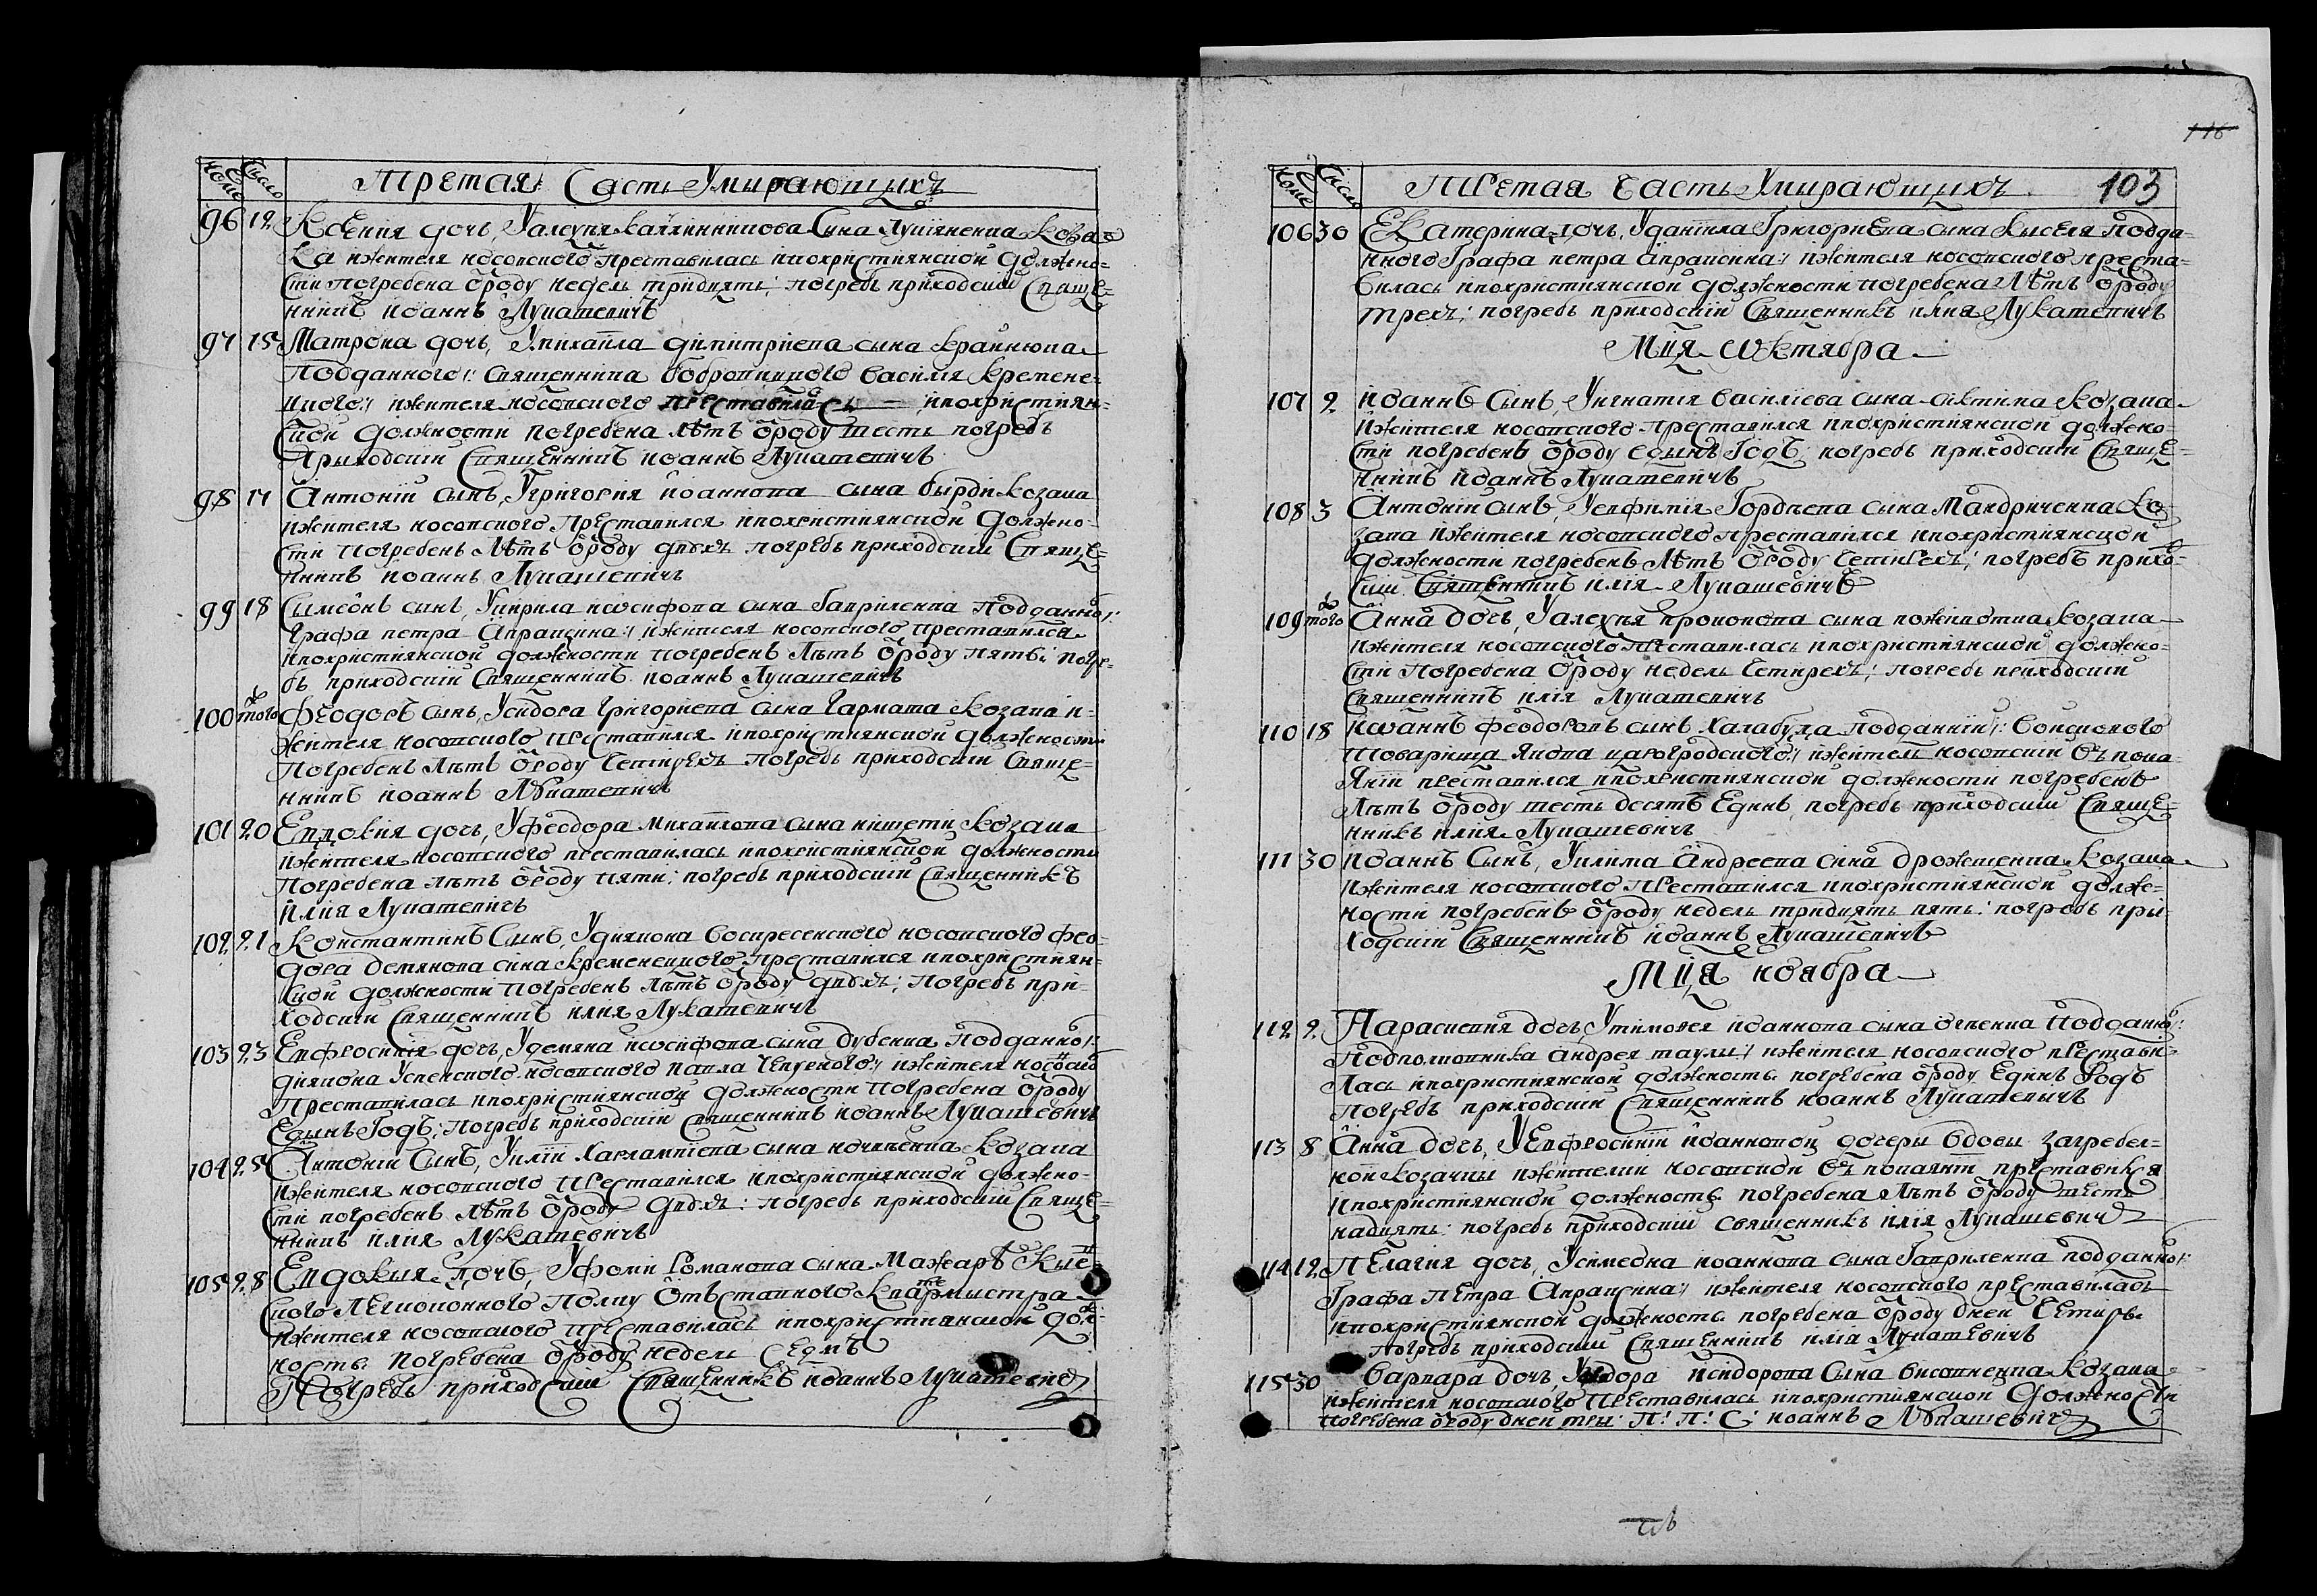 Третая Часть Умирающихъ
96 12 Ксения дочь, Уалеѯѣя каллинниковa Сина Лукіяненка Коза=
ка іжителя носовского преставилась ипохристиянской должно=
сти погребена ѿроду недель тридцять: погребъ приходский Свяще=
нникъ иоаннъ Лукашевичъ
97 15 Матрона дочь, Умихайла димитриева сына крайнюка
Подданного /: священника бобровицкого василия кремене=
цкого :/ іжителя носовского преставилась ипохристиян=
ской должности погребена лѣтъ ѿроду шесть погребъ
Прыходский Священникъ иоаннъ Лукашевичъ
98 17 Антоний сынъ, Угригория иоаннова сына бырди козака
іжителя носовского Преставился ипохристиянской должно=
сти погребенъ лѣтъ ѿроду двохъ погребъ приходский Свяще=
нникъ иоаннъ Лукашевичъ
99 18 Сымеонъ сынъ, Укирила иосифова сына гавриленка Подданно /:
графа петра Апраѯина :/ іжителя носовского преставился
ипохристиянской должности погребенъ лѣтъ ѿроду пять: погре=
бъ приходский Священникъ иоаннъ Лукашевичъ
100 того Феодоръ сынъ, Усидора григориева сына гармаша козака и=
жителя носовского преставился ипохристиянской должности
Погребенъ лѣтъ ѿроду Четирехъ погребъ приходский Свяще=
нникъ иоаннъ Лукашевичъ
101 20 Евдокия дочь, Уфеодора михайлова сына нищети козака
іжителя носовского преставилась ипохристиянской должности
Погребена лѣтъ ѿроду пяти: погребъ приходский Священникъ
илия Лукашевичъ
102 21 Константинъ Сынъ, Удиякона воскресенского носовского фео=
дора демянова сина кременецкого преставился ипохристиян=
ской должности погребенъ лѣтъ ѿроду двохъ; Погребъ при=
ходский Священникъ илия Лукашевичъ
103 23 Евфросиния дочь, Удемяна иосифова сына дубенка Подданно /:
диякона Успенского носовского павла Чепурного :/ іжителя носовско
Преставилась ипохристиянской должности погребена ѿроду
Едынъ Годъ: погребъ приходский священникъ иоаннъ Лукашевичъ
104 25 Антоний Сынъ, Уилии Харлампиева сына козака
іжителя носовского преставился ипохристиянской должно=
сти погребенъ лѣтъ ѿроду двохъ: погребъ приходский Свяще=
нникъ илия Лукашевичъ
105 28 Евдокия дочь, Уфоми Романова сына Мажаръ Кые=
ского Легионного Полку Отъставного квартмыстра
іжителя носовского преставилась ипохристиянской дол=
ность погребена ѿроду недель Седмъ
Погребъ приходский Священникъ иоаннъ Лукашевичъ
116
Третая Часть Умирающихъ 103
106 30 Екатерина дочь, Уданиила Григориева сина Кыселя Подда=
нного Графа петра Апраѯина :/ іжителя носовского преста=
вилась ипохристиянской должности погребена Лѣтъ ѿроду
трехъ; погребъ приходский Священникъ илия Лукашевичъ
Мця Октября
107 2 иоаннъ Сынъ, Уигнатия василиева сына козака
іжителя носовского преставился ипохристиянской должно=
сти погребенъ ѿроду едынъ Годъ; погребъ приходский Свяще=
нникъ иоаннъ Лукашевичъ
108 3 Антоний сынъ, Уевфимия Гордѣева сына Мандриченка Ко=
зака іжителя носовского преставился ипохристиянской
должности погребенъ лѣтъ ѿроду Четирехъ; погребъ прихо=
ский Священникъ илия Лукашевичъ
109 того Анна дочъ, Уалеѯѣя прокопова сына козака
іжителя носовского преставилась ипохристиянской должно=
сти Погребена ѿроду недель Четирехъ; погребъ приходский
священникъ илия Лукашевичъ
110 18 иоаннъ феодоровъ сынъ Халабуда Подданний /: войскового
товарища Якова царогродского :/ іжитель носовский въ пока=
янии преставился ипохристиянской должности погребенъ
лѣтъ ѿроду шесть десятъ Единъ, погребъ приходский Свяще=
нникъ илия Лукашевичъ
111 30 иоаннъ Сынъ, Уклима Андреева сина козака
іжителя носовского преставился ипохристиянской долже=
ности погребенъ ѿроду недель тридцять пять: погребъ при=
ходский Священникъ иоаннъ Лукашевичъ
Мця ноября
112 2 Параскевия дочъ, Утимофея иоаннова сына Подданно /:
Подполковника Андрея таулы :/ іжителя носовского престави=
лась ипохристиянской должность погребена ѿроду Единъ Годъ
погребъ приходский Священникъ иоаннъ Лукашевичъ
113 8 Анна дочъ, Уевфросинии иоанновой дочеры вдовы загребел=
ной козачки іжителки носовской въ покаянии преставися
ипохристиянской должность погребена лѣтъ ѿроду шесть
надцять: погребъ приходский священникъ илия Лукашевичъ
114 12 Пелагия дочъ, Усимеона иоаннова сына Гавриленка подданно /:
Графа Петра Апраѯина :/ іжителя носовского преставиласъ
ипохристиянской должность погребена ѿроду дней Четиры
Погребъ приходский Священникъ илия Лукашевичъ
115 30 Варвара дочъ, исидорова Сына козака
іжителя носовского преставилась ипохристиянской Должности
погребена ѿроду дней три: П: П: С: иоаннъ Лукашевичъ